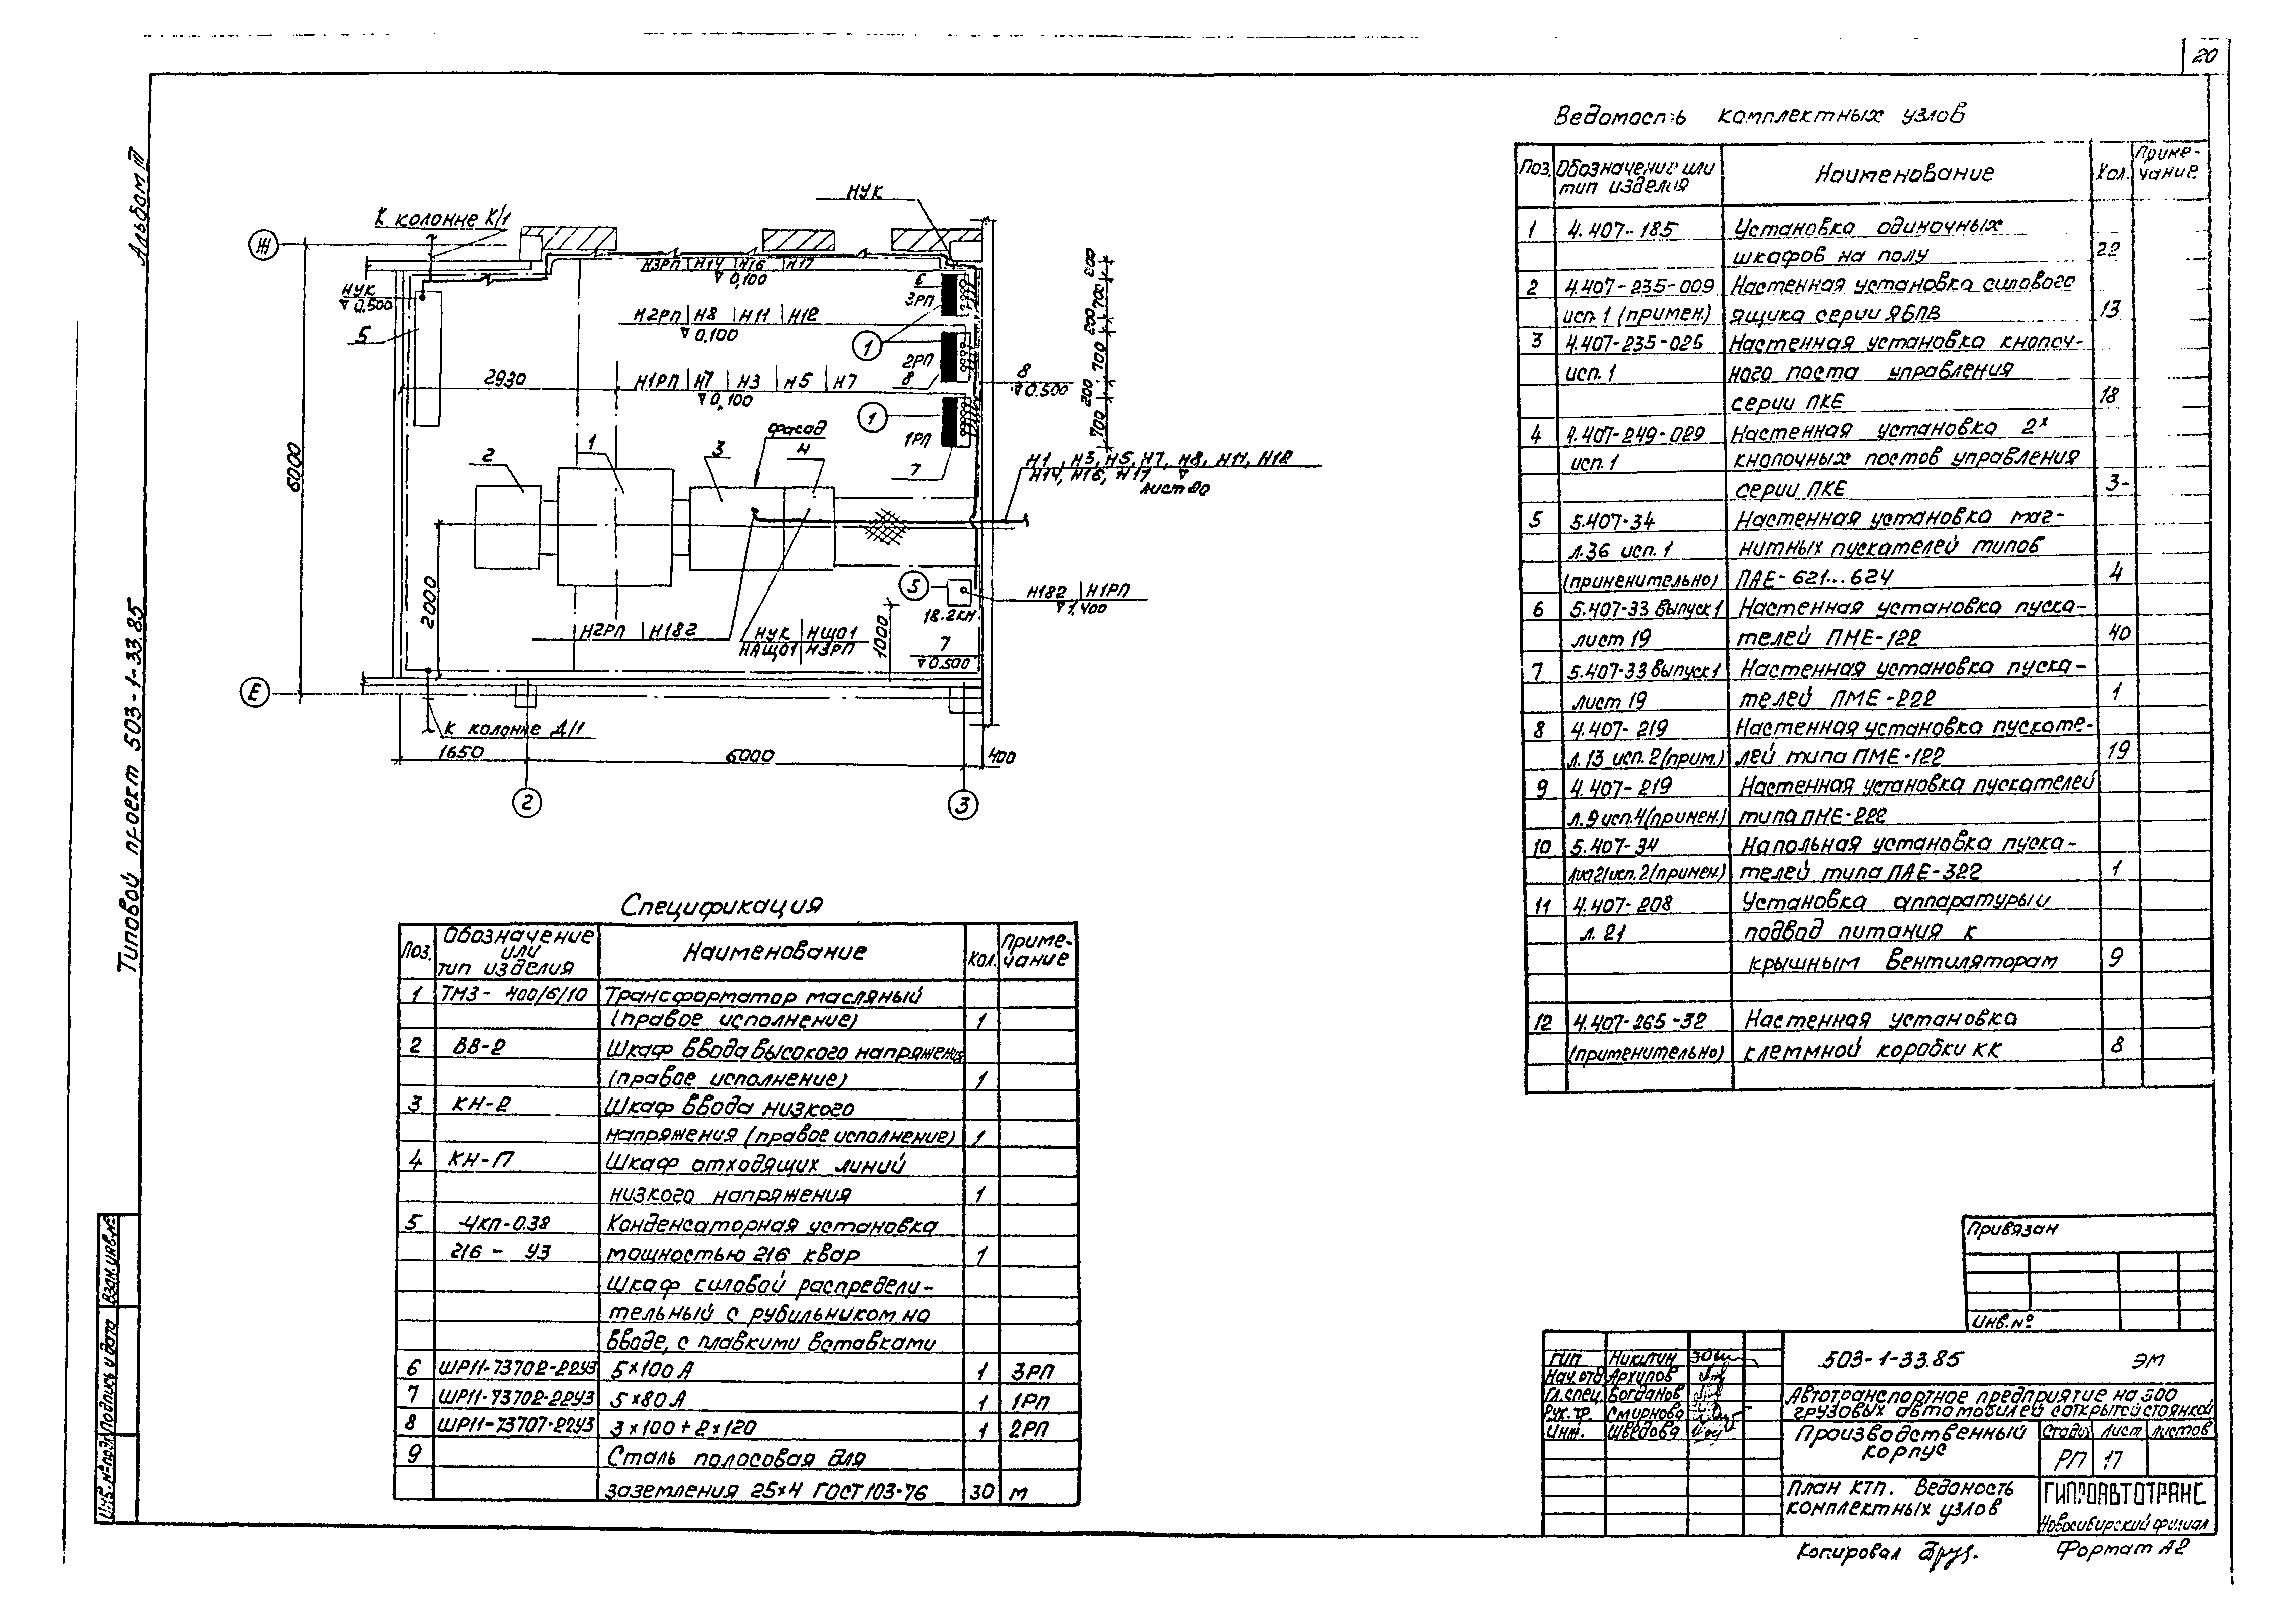 20
Альбом III
Типовой проект 503-1-33.85
Взам. инв. №
Подпись и дата
Инв. № подл.
К колонне К/1
НУК
Ж
Н3РП Н14 Н16 Н17
0,100
НУК
0.500
5
6
3РП
Н2РП Н8 Н11 Н12
0.100
1
2РП
8
2930
Н1РП Н7 Н3 Н5 Н7
0,100
1
1РП
7
8
0.500
200
700
200
700
200
700
фасад
1
2
3
4
Н1, Н3, Н5, Н7, Н8, Н11, Н12
Н14, Н16, Н17
лист 20
6000
2000
5
Н182 Н1РП
1,400
18.2КН
1000
Н2РП Н182
НУК НЩО1
НАЩО1 Н3РП
7
0.500
Е
К колонне Д/1
1650
6000
400
2
3
Спецификация
Поз. Обозначение или тип изделия Наименование Кол. Примечание
1 ТМЗ- 400/6/10 Трансформатор масляный
(правое исполнение) 1
2 ВВ-2 Шкаф ввода высокого напряжения
(правое исполнение) 1
3 КН-2 Шкаф ввода низкого
напряжения (правое исполнение) 1
4 КН-17 Шкаф отходящих линий
низкого напряжения 1
5 УКП-0.38 Конденсаторная установка
216 - У3 мощностью 216 квар 1
Шкаф силовой распредели-
тельный с рубильником на
вводе, с плавкими вставками
6 ШР11-73702-22У3 5×100 А 1 3РП
7 ШР11-73702-22У3 5×80 А 1 1РП
8 ШР11-73707-22У3 3×100+2×120 1 2РП
9 Сталь полосовая для
заземления 25×4 ГОСТ 103-76 30 м
Ведомость комплектных узлов
Поз. Обозначение или тип изделия Наименование Кол. Приме-чание
1 4.407-185 Установка одиночных
шкафов на полу 22
2 4.407-235-009 Настенная установка силового
исп. 1 (примен.) ящика серии ЯБПВ 13
3 4.407-235-025 Настенная установка кнопоч-
исп. 1 ного поста управления
серии ПКЕ 18
4 4.407-249-029 Настенная установка 2х
исп. 1 кнопочных постов управления
серии ПКЕ 3-
5 5.407-34 Настенная установка маг-
л.36 исп. 1 нитных пускателей типов
(применительно) ПАЕ-621...624 4
6 5.407-33 Выпуск 1 Настенная установка пуска-
лист 19 телей ПМЕ-122 40
7 5.407-33 Выпуск 1 Настенная установка пуска-
лист 19 телей ПМЕ-222 1
8 4.407-219 Настенная установка пускате-
л.13 исп. 2 (прим.) лей типа ПМЕ-122 19
9 4.407-219 Настенная установка пускателей
л.9 исп.4 (примен.) типа ПМЕ-222
10 5.407-34 Напольная установка пуска-
Лист 21 исп. 2 (примен.) телей типа ПАЕ-322 1
11 4.407-208 Установка аппаратуры и
л. 21 подвод питания к
крышным вентиляторам 9
12 4.407-265-32 Настенная установка
(применительно) клеммной коробки КК 8
Привязан
Инв. №
ГИП Никитин
Нач. отд Архипов
Гл. спец. Богданов
Рук. гр. Смирнова
Инж. Шведова
503-1-33.85 ЭМ
Автотранспортное предприятие на 300
грузовых автомобилей с открытой стоянкой
Производственный корпус
Стадия Лист Листов
РП 17
План КТП. Ведомость
комплектных узлов
ГИПРОАВТОТРАНС
Новосибирский филиал
Копировал
Формат А2